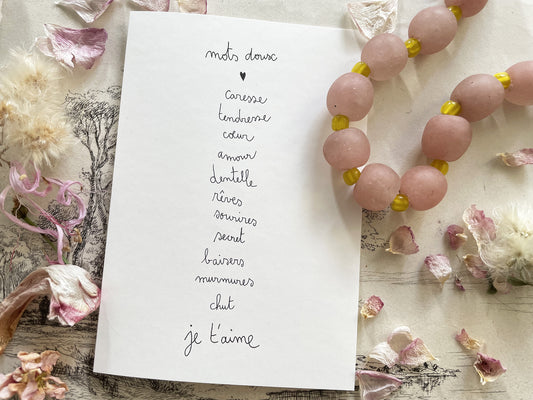 mots doux
♥
caresse
tendresse
cœur
amour
dentelle
rêves
sourires
secret
baisers
murmures
chut
je t'aime